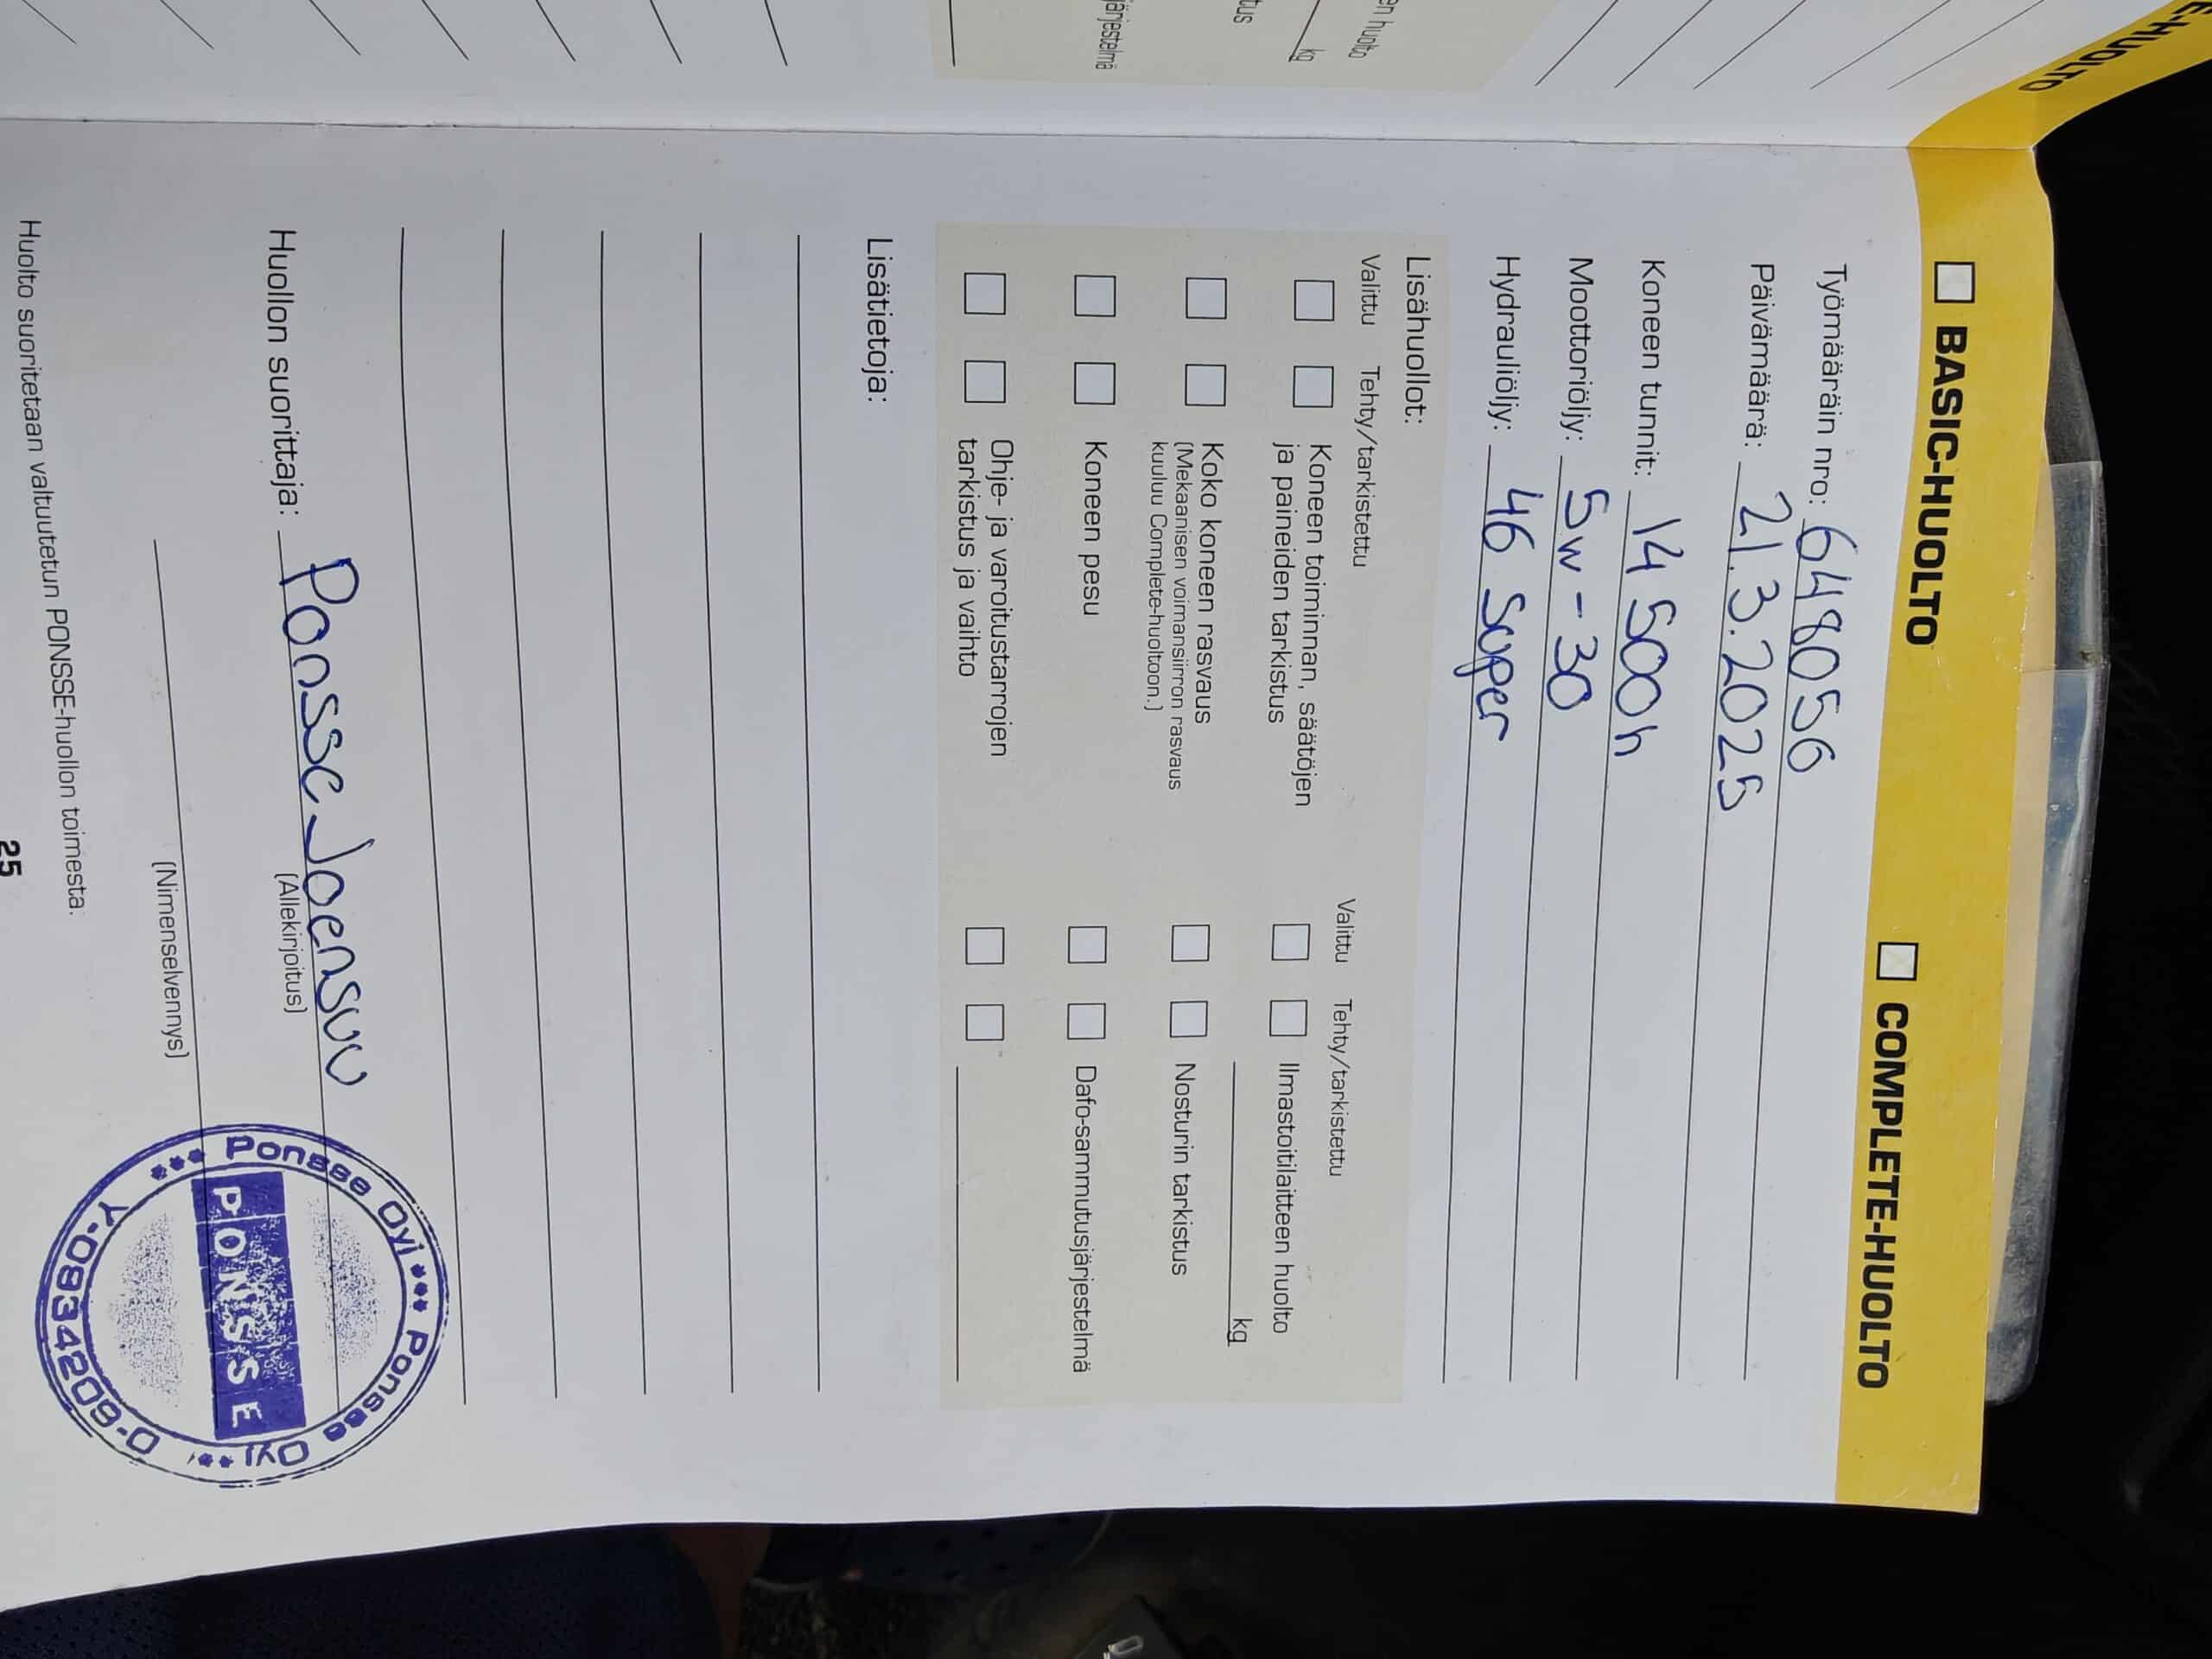 E-HUOLTO
en huolto
kg
tus
järjestelmä
BASIC-HUOLTO
COMPLETE-HUOLTO
Työmääräin nro: 648056
Päivämäärä: 21.3.2025
Koneen tunnit: 14 500h
Moottoriöljy: 5w-30
Hydrauliöljy: 46 Super
Lisähuollot:
Valittu Tehty/tarkistettu
Koneen toiminnan, säätöjen
ja paineiden tarkistus
Koko koneen rasvaus
(Mekaanisen voimansiirron rasvaus
kuuluu Complete-huoltoon.)
Koneen pesu
Ohje- ja varoitustarrojen
tarkistus ja vaihto
Valittu Tehty/tarkistettu
Ilmastoitilaitteen huolto
kg
Nosturin tarkistus
Dafo-sammutusjärjestelmä
Lisätietoja:
Huollon suorittaja: Ponsse Joensuu
(Allekirjoitus)
(Nimenselvennys)
Ponsse Oyj *** Ponsse Oyj ***
PONSSE
Y-0934209-0 ***
Huolto suoritetaan valtuutetun PONSSE-huollon toimesta.
25